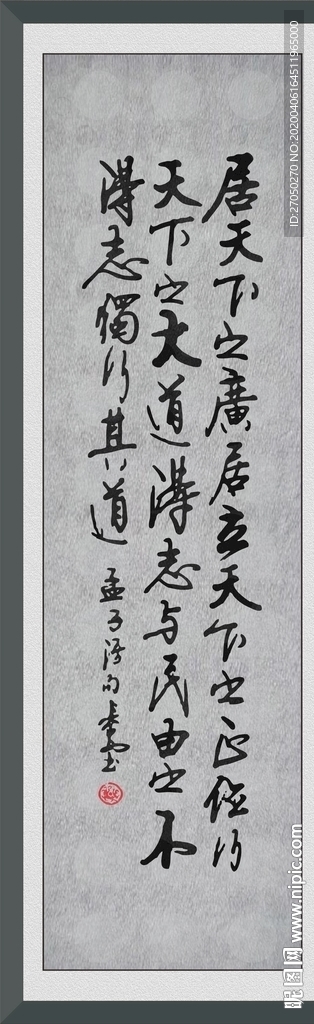 居天下之廣居立天下之正位行
天下之大道得志与民由之不
得志獨行其道
孟子語句
ID:27050270 NO:20200406164511965000
昵图网 www.nipic.com